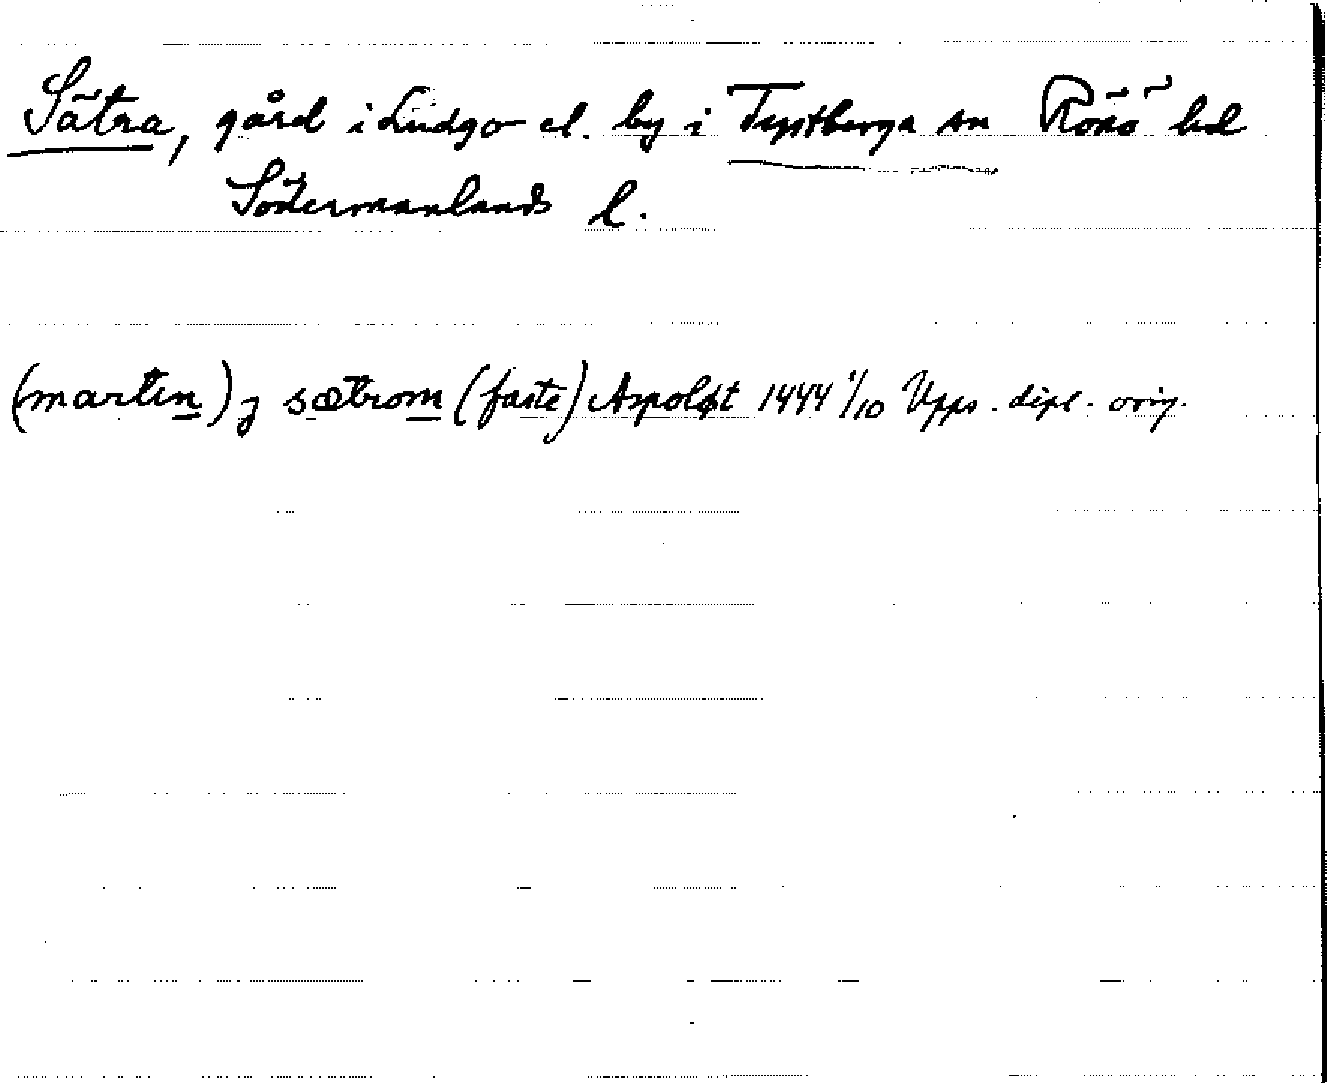 Sätra, gård i Ludgo el. by i Tystberga sn Rönö hd
Södermanlands l.
(martin) j sætrom (faste) Aspoløt 1444 1/10 Upps. dipl. orig.